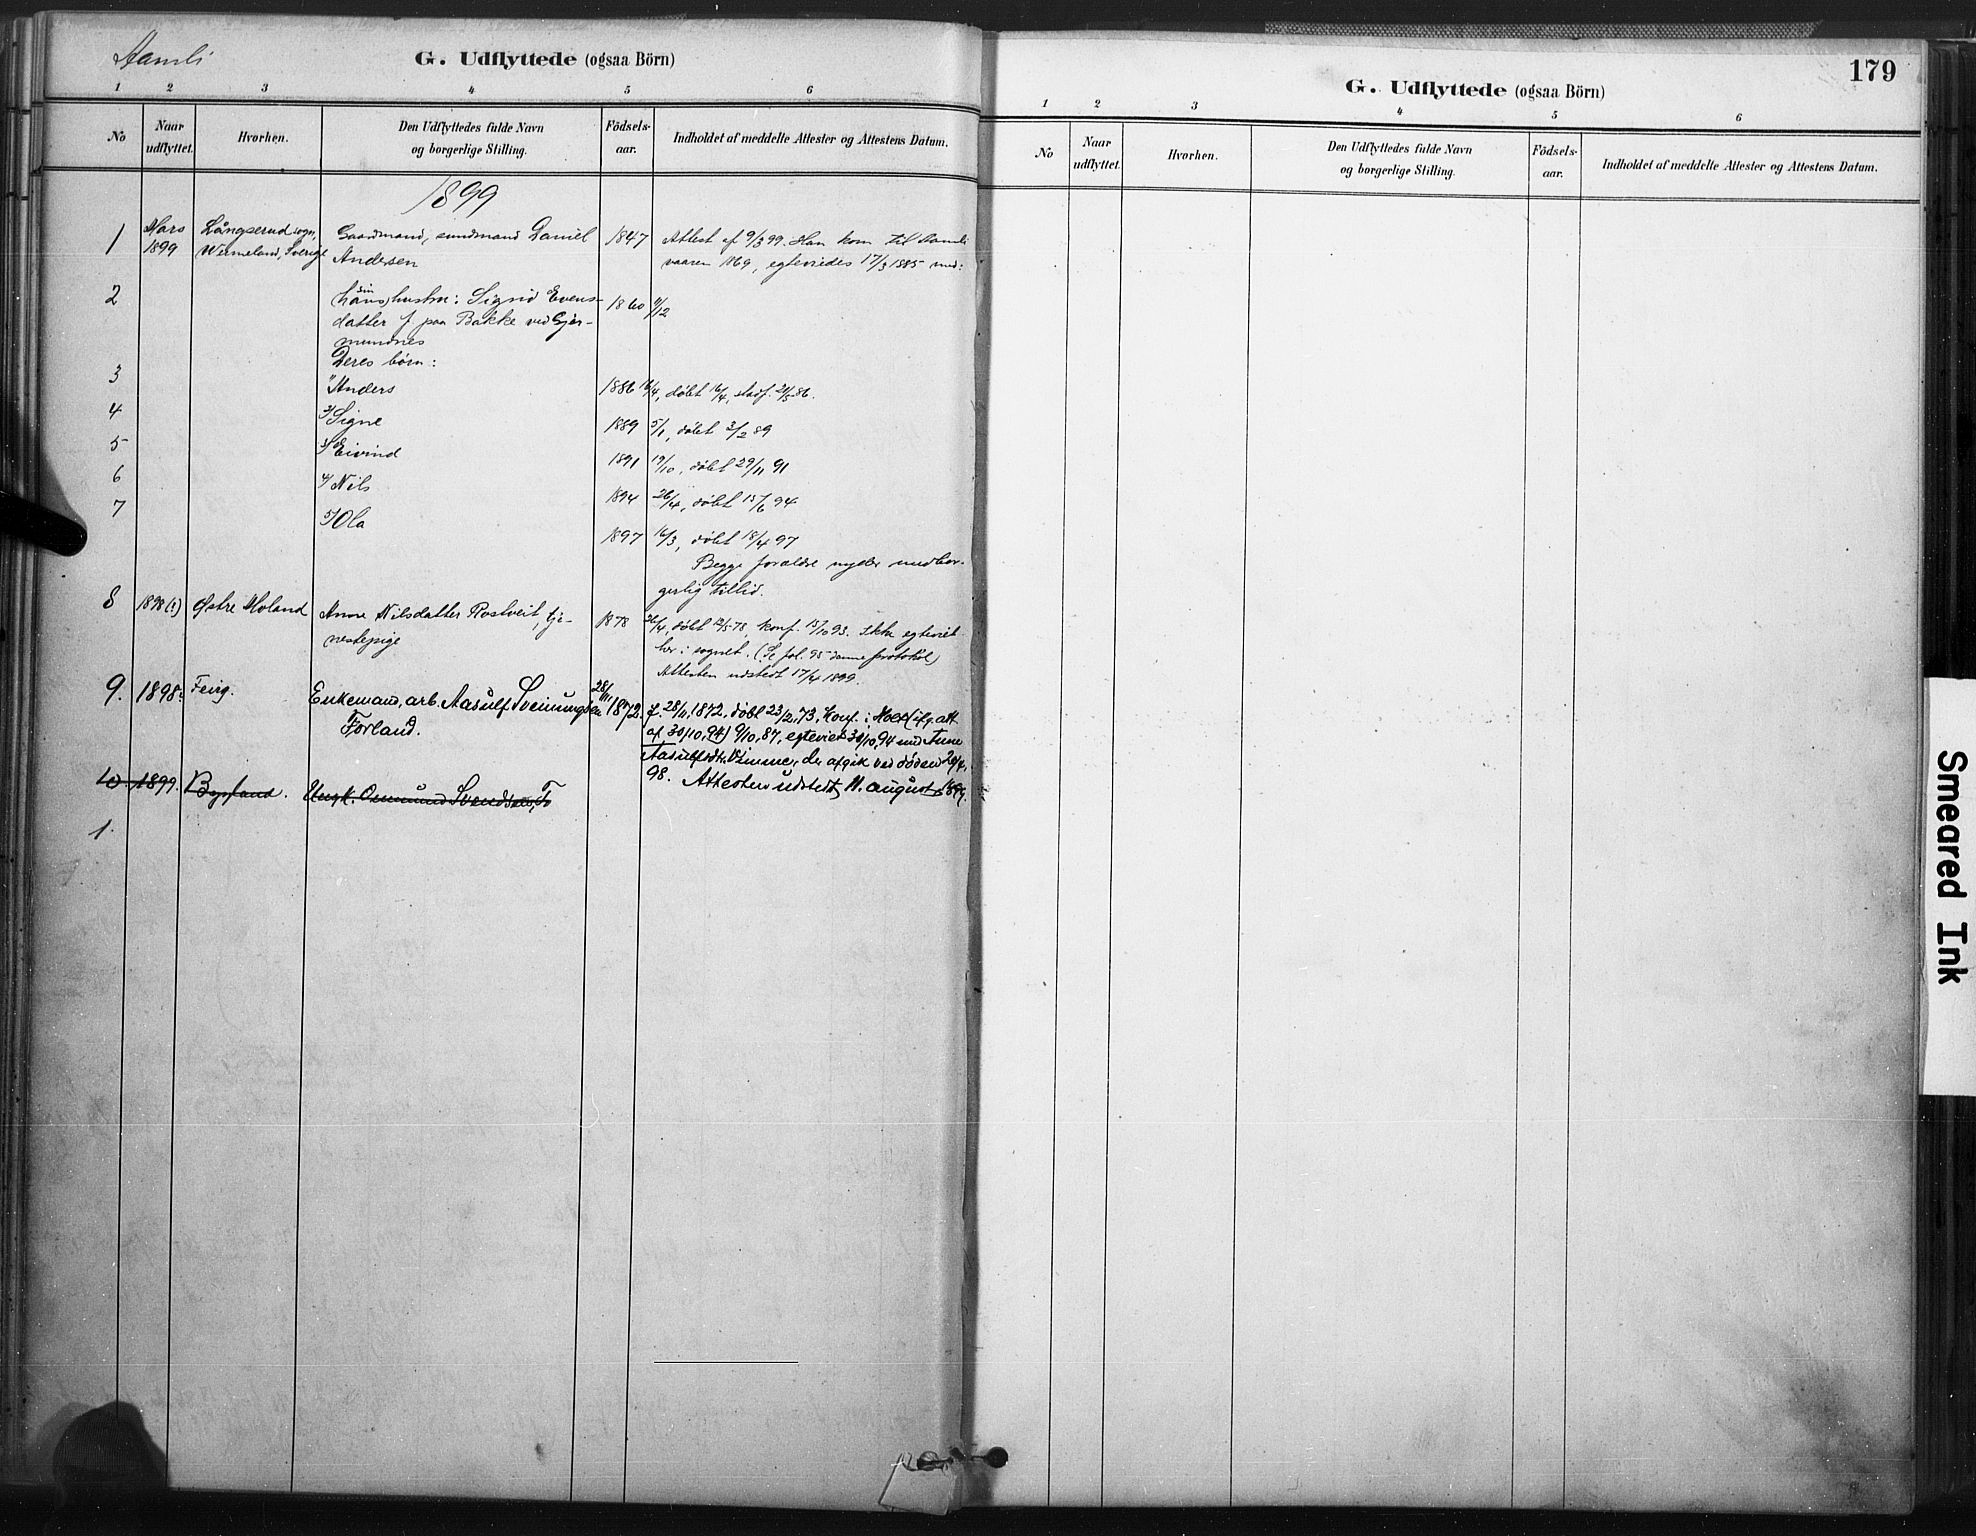 Aamli
G. Udflyttede (ogsaa Börn)
1 2 3 4 5 6
No
Naar udflyttet.
Hvorhen.
Den Udflyttedes fulde Navn og borgerlige Stilling.
Födsels-aar.
Indholdet af meddelte Attester og Attestens Datum.
1899
1 Mars 1899 Långserud sogn, Wermeland, Sverige Gaardmand, sundmand Daniel Andersen 1847 Attest af 9/3 99. Han kom til Aamli
vaaren 1869, egteviedes 17/3 1885 med:
2 sin hustru: Sigrid Evens- 1860
datter f. paa Bakke ved Gjer-
mundnes
Deres børn:
3 1) Anders 1886 16/4, døbt 16/4, stadf. 21/5 86.
4 2) Signe 1889 5/1, døbt 3/2 89
5 3) Eivind 1891 19/10, døbt 29/11 91
6 4) Nils 1894 26/4, døbt 15/6 94
7 5) Ola 1897 16/3, døbt 18/4 97
Begge forældre nyder medbor-
gerlig tillid.
8 1898 (?) Østre Moland Anne Nilsdatter Rostveit, tje- 1878 26/4, døbt 12/5 78, konf. 15/10 93. Ikke egteviet
nestepige her i sognet. (Se fol. 95 denne protokol)
Attesten udstedt 17/4 1899.
9. 1898. Feirg. Enkemand, arb. Aasulf Sveinungsen 28/11 1872. f. 28/11, 1872, døbt 23/2, 73, Konf. i (ifg. att
Förland. af 30/10, 94) 9/10, 87, egteviet 30/10, 94 med Anne
Aasulfsdtr. Vimme, der afgik ved døden 20/4,
98. Attesten udstedt 11. august 1899.
10. 1899. Bygland. Ungk. Ommund Svendsen, To
1.
179
G. Udflyttede (ogsaa Börn)
1 2 3 4 5 6
No
Naar udflyttet.
Hvorhen.
Den Udflyttedes fulde Navn og borgerlige Stilling.
Födsels-aar.
Indholdet af meddelte Attester og Attestens Datum.
Smeared Ink